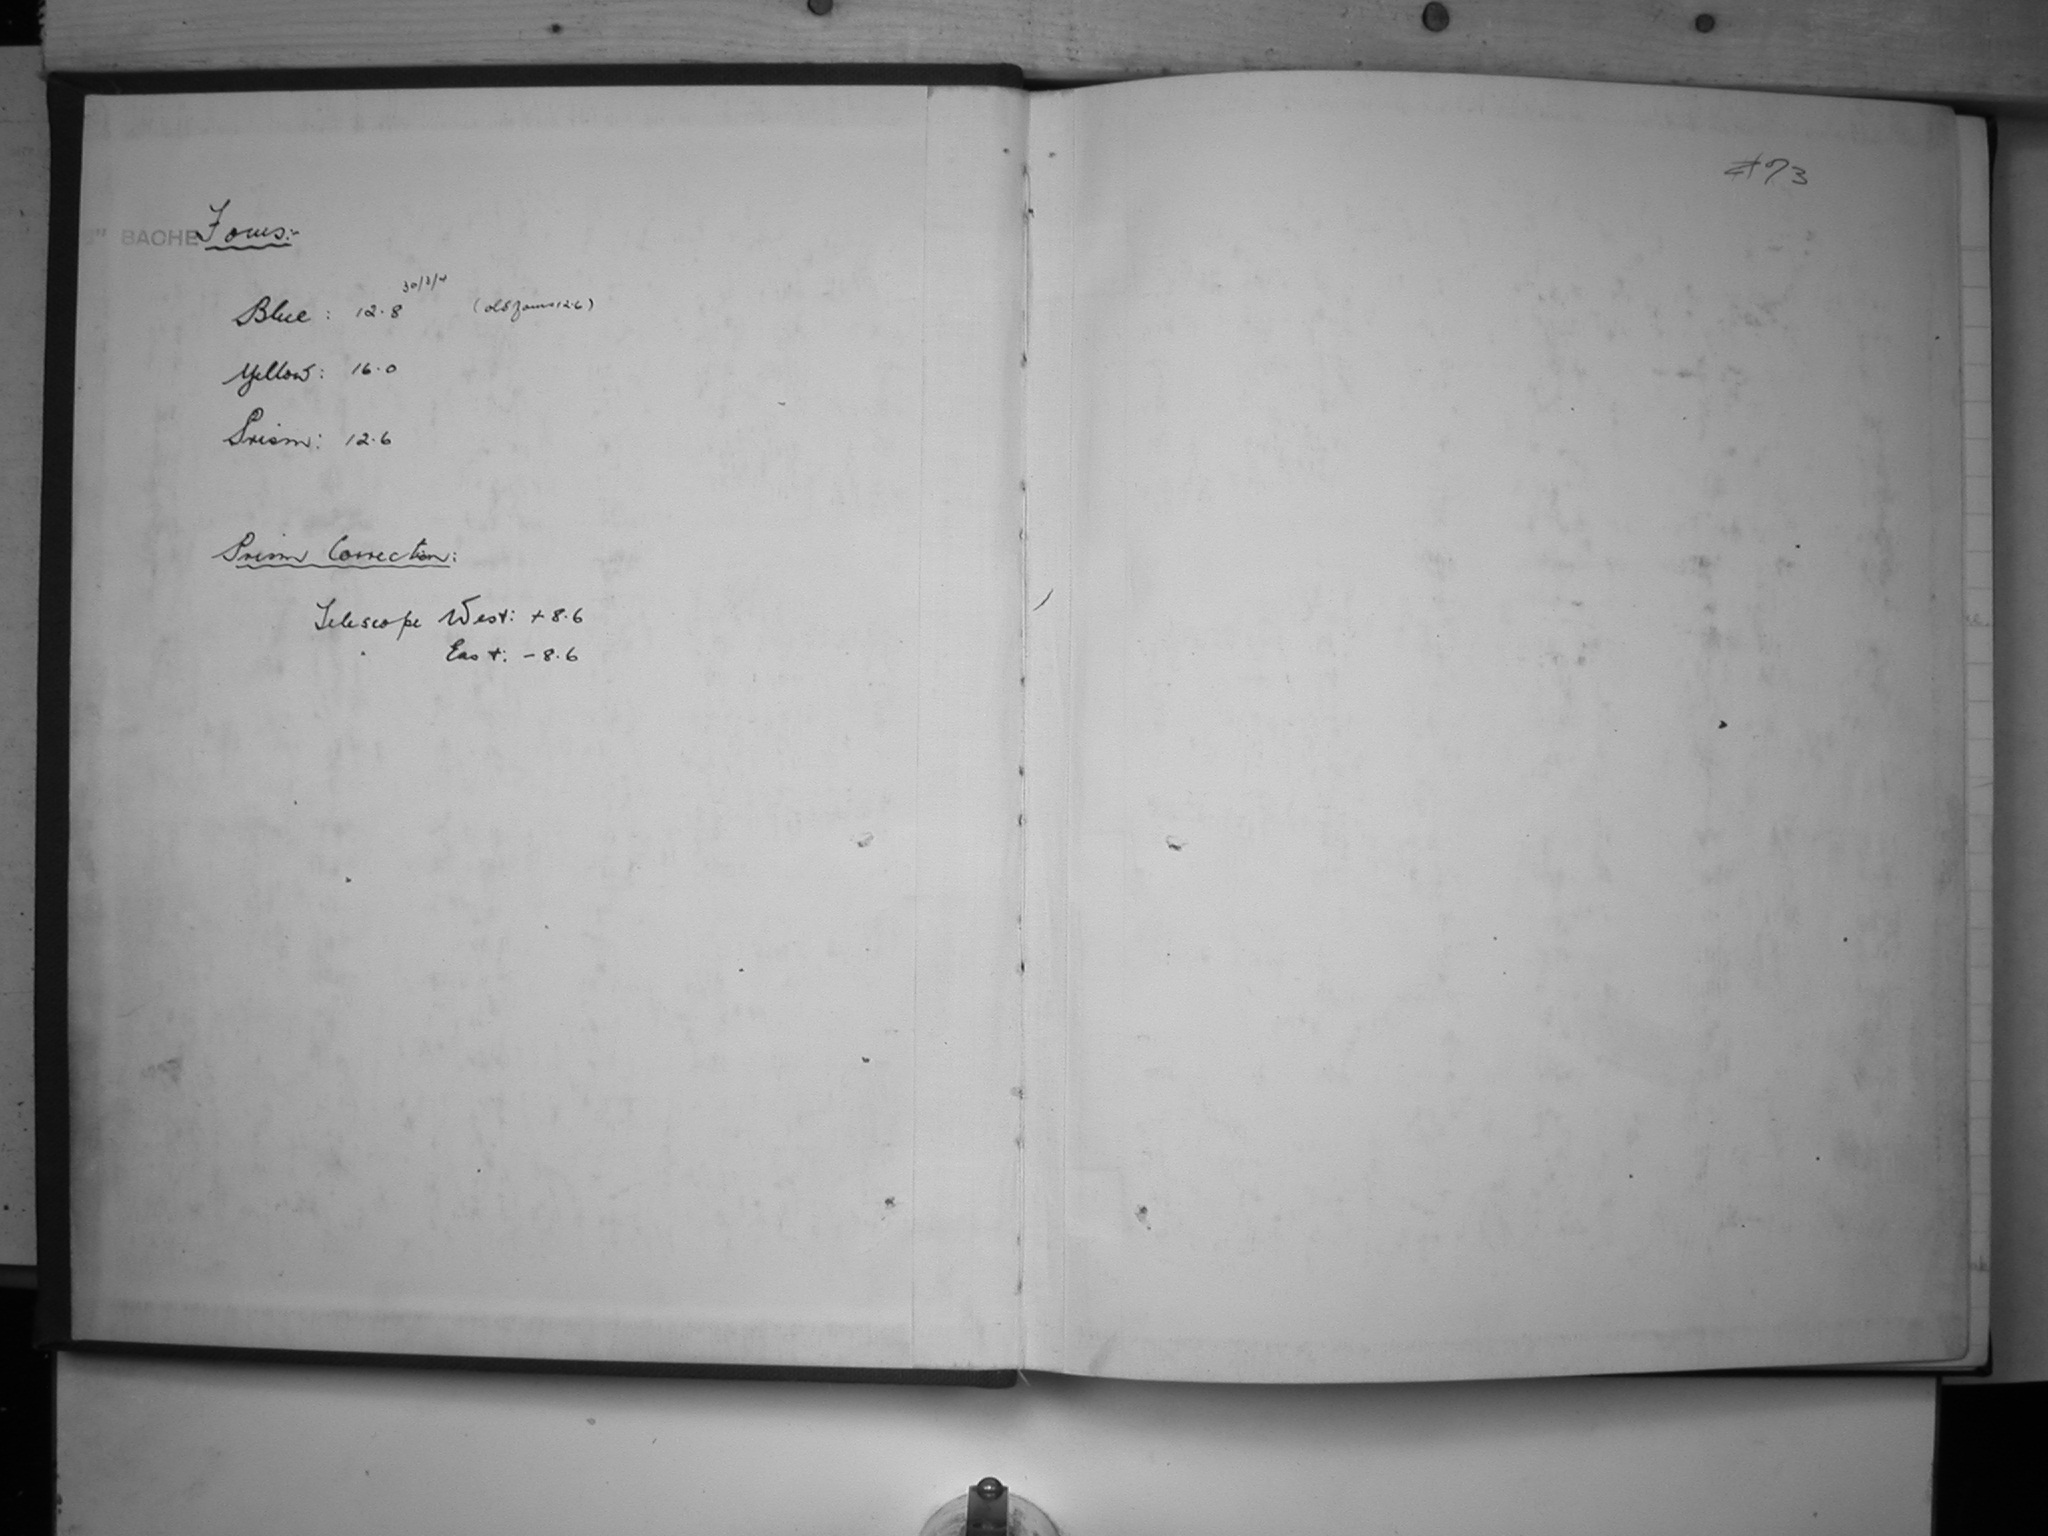 8" BACHE
Focus:-
30/3/4
Blue : 12.8 (old focus 12.6)
Yellow: 16.0
Prism: 12.6
Prism Correction:
Telescope West: +8.6
East: -8.6
#73